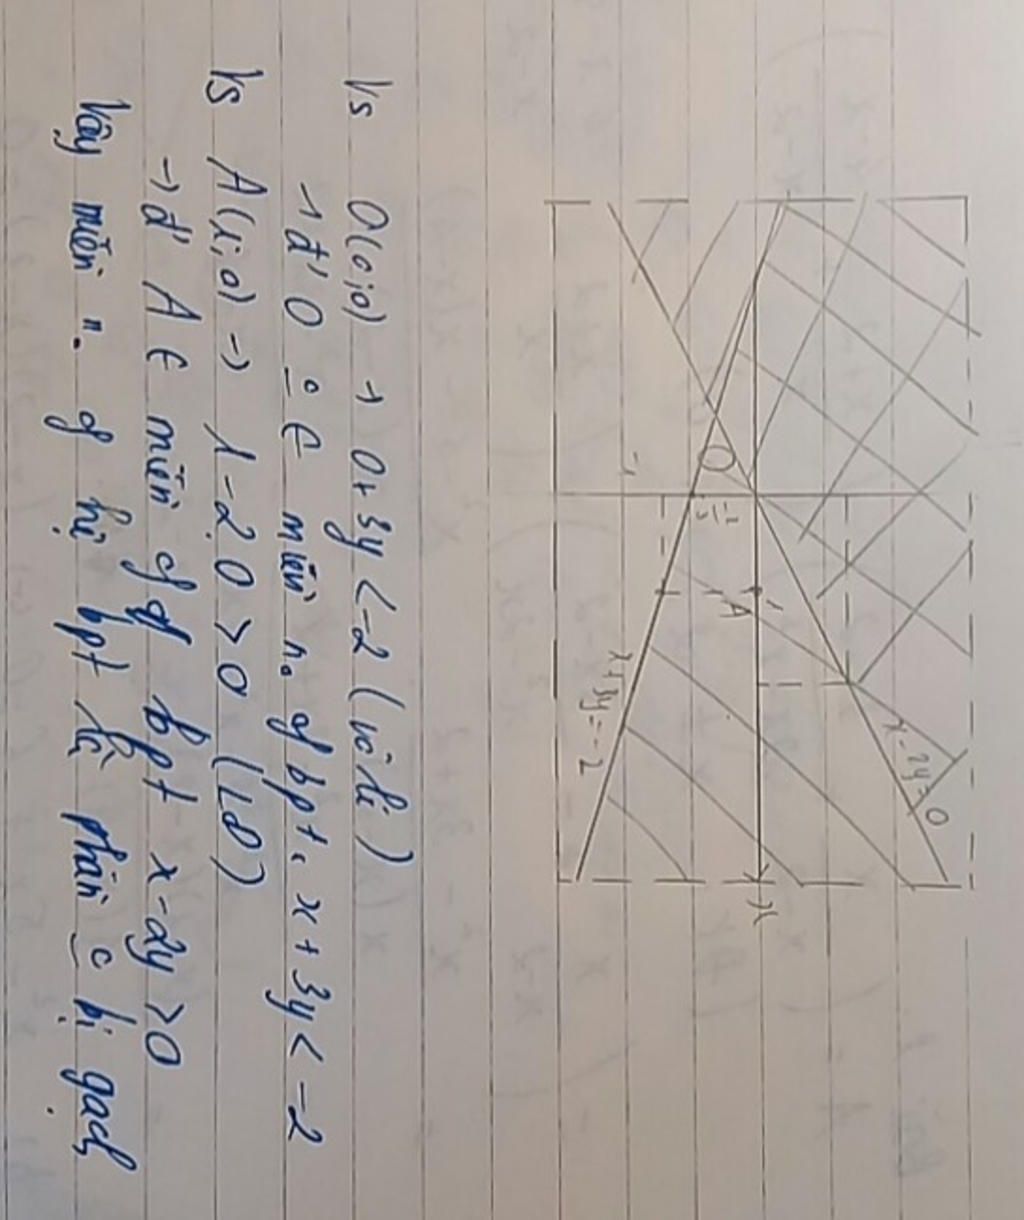 x - 2y = 0
O
x
A
-2/3
-1
x + 3y = -2
Vs O(0;0) → 0 + 3y < -2 (vô lí)
→ đ' O o ∈ miền n. of bpt. x + 3y < -2
Vs A(1;0) → 1 - 2.0 > 0 (LĐ)
→ đ' A ∈ miền of of bpt x - 2y > 0
Vậy miền n. of hệ bpt là phần c bị gạch